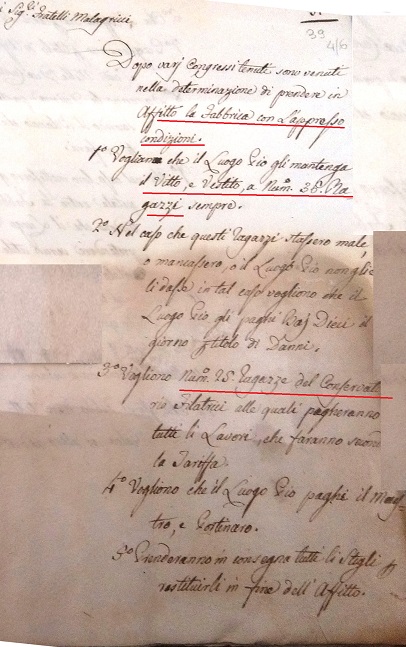 i Sig.ri Fratelli Malagricci
39
4/6
Dopo varj Congressi tenuti sono venuti
nella determinazione di prendere in
Affitto la Fabbrica con l'appresso
condizioni.
1° Vogliano che il Luogo Pio gli mantenga
il Vitto, e Vestito, a Num.° 36. Ra
gazzi sempre.
2° Nel caso che questi Ragazzi stassero male,
o mancassero, o il Luogo Pio non glie
li dasse in tal caso vogliono che il
Luogo Pio gli paghi Baj Dieci il
giorno titolo di Danni.
3° Vogliono Num.° 25. Ragazze del Conservato
rio Filatrici alle quali pagheranno
tutti li Lavori, che faranno secondo
la Tariffa.
4° Vogliono che il Luogo Pio paghi il Maes
tro, e Portinaro.
5° Prenderanno in consegna tutti li Stigli
restituirli in fine dell'Affitto.